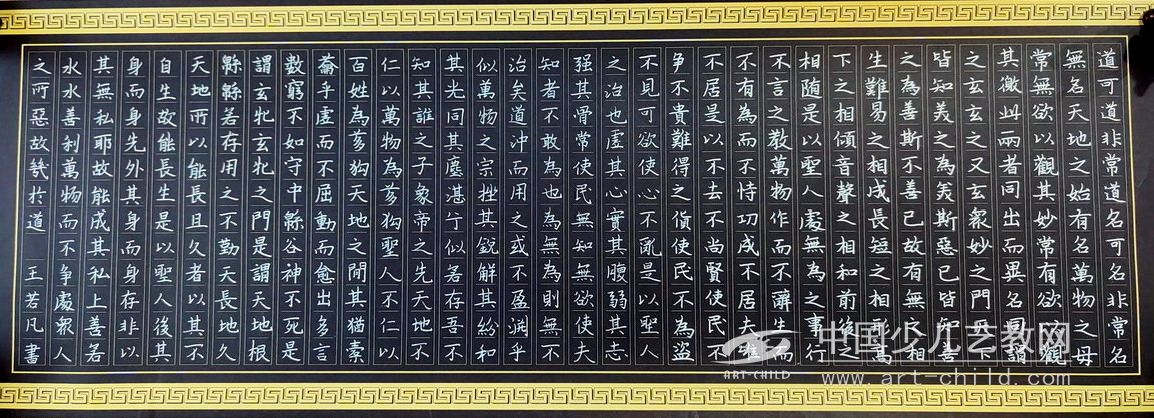 道可道非常道名可名非常名
無名天地之始有名萬物之母
常無欲以觀其妙常有欲以觀
其徼此兩者同出而異名同謂
之玄玄之又玄衆妙之門天下
皆知美之為美斯惡已皆知善
之為善斯不善已故有無之相
生難易之相成長短之相形高
下之相傾音聲之相和前後之
相随是以聖人處無為之事行
不言之教萬物作而不辭生而
不有為而不恃功成不居夫唯
不居是以不去不尚賢使民不
争不貴難得之貨使民不為盗
不見可欲使心不亂是以聖人
之治也虚其心實其腹弱其志
强其骨常使民無知無欲使夫
知者不敢為也為無為則無不
治矣道沖而用之或不盈渊乎
似萬物之宗挫其銳解其紛和
其光同其塵湛兮似若存吾不
知其誰之子象帝之先天地不
仁以萬物為芻狗聖人不仁以
百姓為芻狗天地之間其猶橐
龠乎虚而不屈動而愈出多言
數窮不如守中緜谷神不死是
謂玄牝玄牝之門是謂天地根
緜緜若存用之不勤天長地久
天地所以能長且久者以其不
自生故能長生是以聖人後其
身而身先外其身而身存非以
其無私耶故能成其私上善若
水水善利萬物而不争處衆人
之所惡故幾於道 王若凡書
中国少儿艺教网
ART-CHILD
www.art-child.com